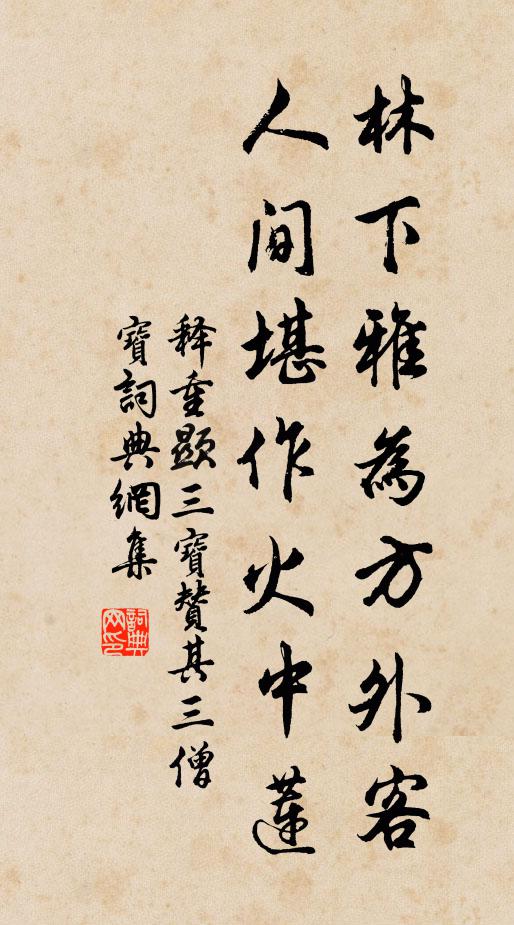 林下雅為方外客
人间堪作火中蓮
释重顯三寶贊其三僧
寶詞典網集
詞典网印